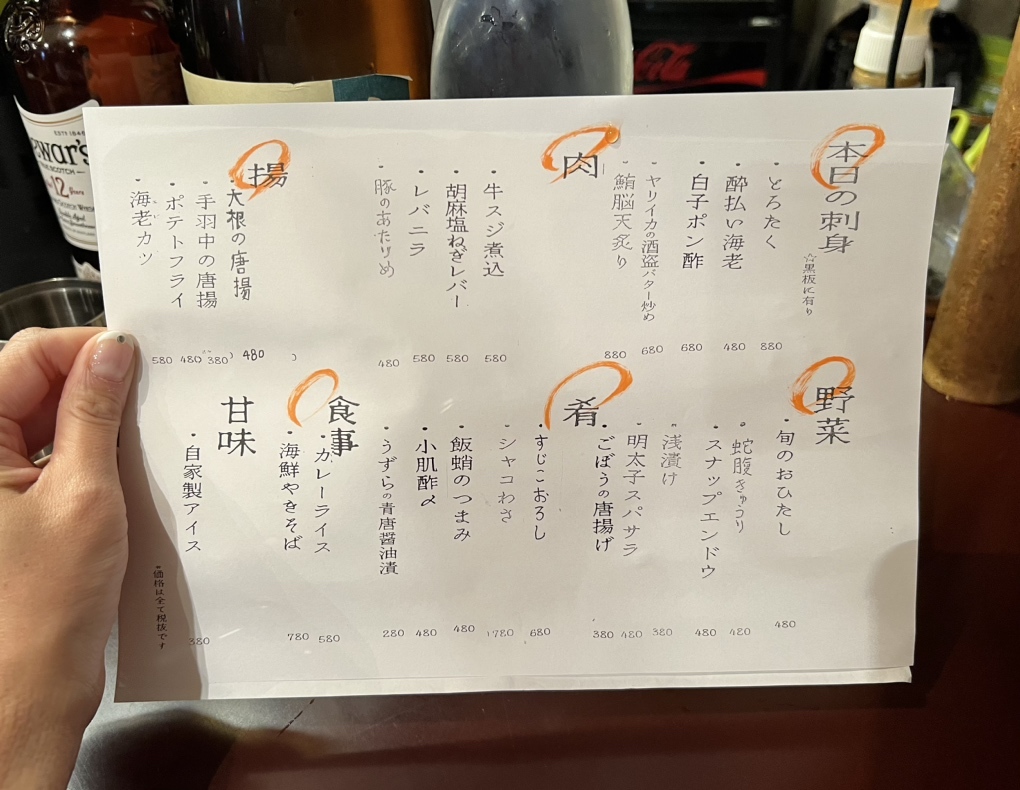 本日の刺身
☆黒板に有り
・とろたく 880
・酔払い海老 480
・白子ポン酢 680
・ヤリイカの酒盗バター炒め 680
・鮪脳天炙り 880
肉
・牛スジ煮込 580
・胡麻塩ねぎレバー 580
・レバニラ 580
・豚のあたりめ 480
揚
・大根の唐揚 480
・手羽中の唐揚 380
・ポテトフライ 480
・海老カツ 580
野菜
・旬のおひたし 480
・蛇腹きゅうり 480
・スナップエンドウ 480
・浅漬け 380
・明太子スパサラ 480
・ごぼうの唐揚げ 380
肴
・すじこおろし 680
・シャコわさ 780
・飯蛸のつまみ 480
・小肌酢〆 480
・うずらの青唐醤油漬 280
食事
・カレーライス 580
・海鮮やきそば 780
甘味
・自家製アイス 380
・価格は全て税抜です
ESTD 1846
ewar's
12 Years
Coca-Cola